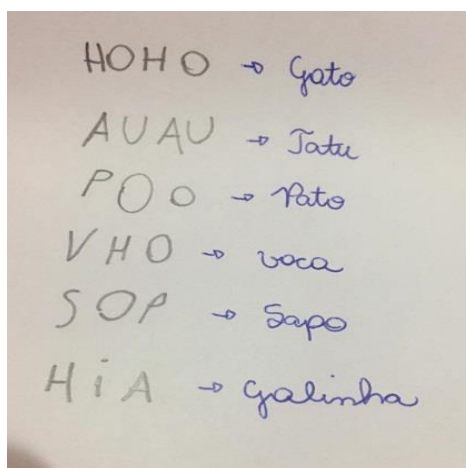 HOHO → Gato
AUAU → Tatu
POO → Pato
VHO → voca
SOP → Sapo
HiA → galinha